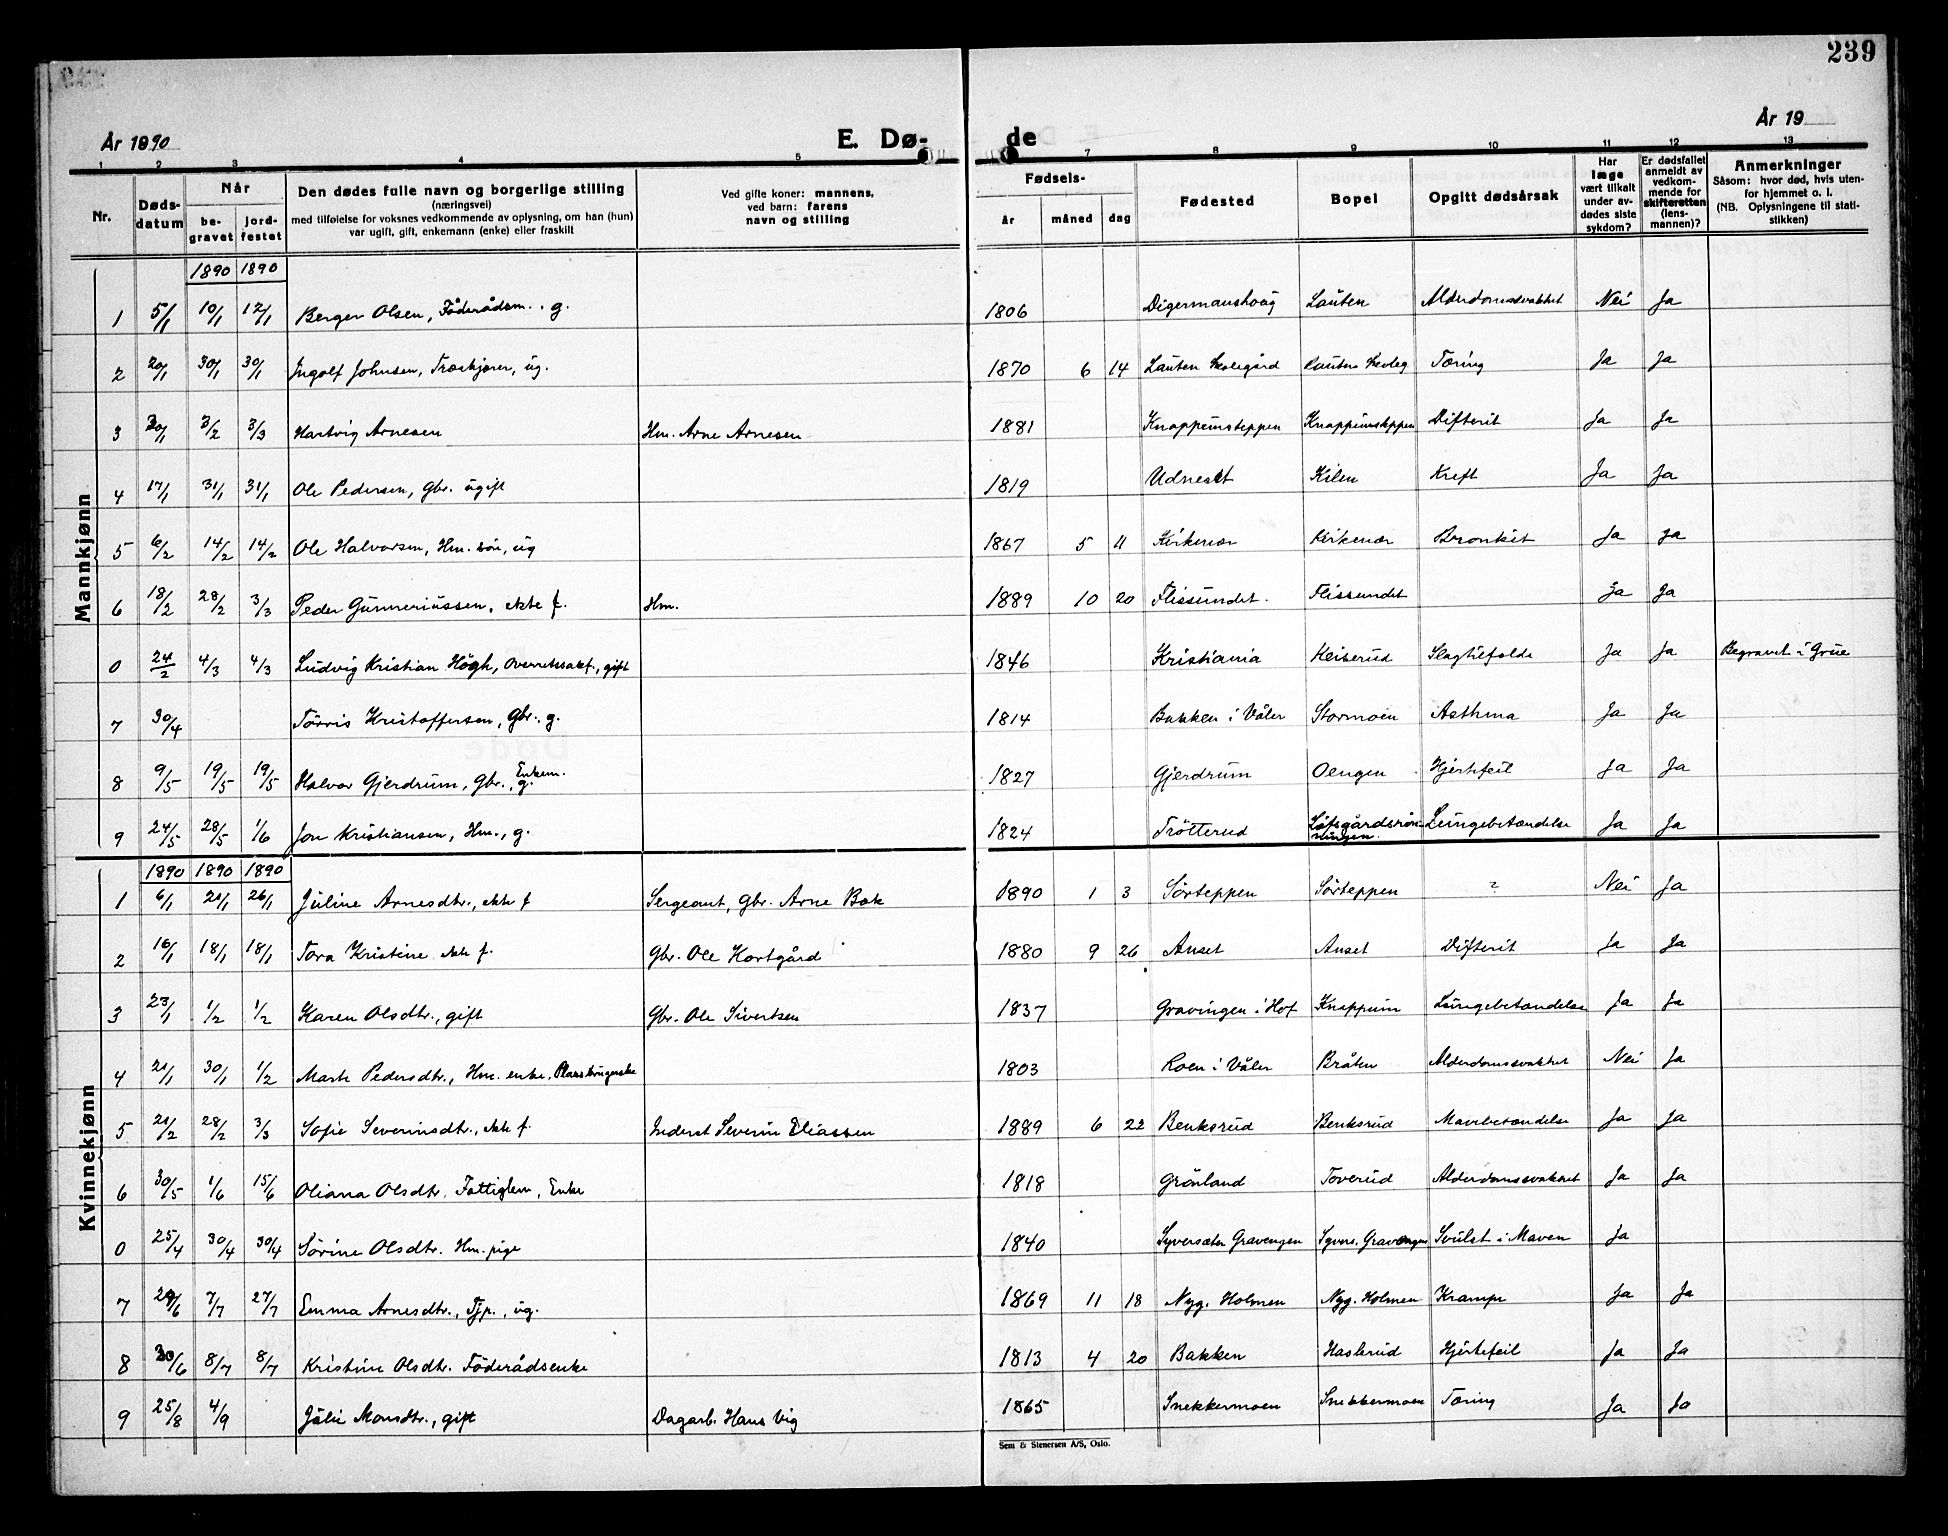 239
År 1890 E. Dø- de År 19
1 2 3 4 5 7 8 9 10 11 12 13
Nr. Døds-datum Når be-gravet jord-festet Den dødes fulle navn og borgerlige stilling (næringsvei) med tilføielse for voksnes vedkommende av oplysning, om han (hun) var ugift, gift, enkemann (enke) eller fraskilt Ved gifte koner: mannens, ved barn: farens navn og stilling Fødsels- år måned dag Fødested Bopel Opgitt dødsårsak Har læge vært tilkalt under av-dødes siste sykdom? Er dødsfallet anmeldt av vedkom-mende for skifteretten (lens-mannen)? Anmerkninger Såsom: hvor død, hvis uten-for hjemmet o. l. (NB. Oplysningene til stati-stikken)
Mannkjønn
1890 1890
1 5/1 10/1 12/1 Berger Olsen, Föderådsm., g. 1806 Digermanshoug Lauten Alderdomssvakhet Nei Ja
2 20/1 30/1 30/1 Ingolf Johnsen, Træskjærer, ug. 1870 6 14 Lauten Skolegård Lauten Skoleg Tæring Ja Ja
3 30/1 3/2 3/3 Hartvig Arnesen Hm. Arne Arnesen 1881 Knappumsteppen Knappumsteppen Difterit Ja Ja
4 17/1 31/1 31/1 Ole Pedersen, Gbr. ugift 1819 Udneset Kilen Kreft Ja Ja
5 6/2 14/2 14/2 Ole Halvorsen, Hm. sön, ug 1867 5 11 Kirkenær Kirkenær Bronkit Ja Ja
6 18/2 28/2 3/3 Peder Gunneriussen, ekte f. Hm. 1889 10 20 Flissundet. Flissundet Ja Ja
0 24/2 4/3 4/3 Ludvig Kristian Högh, Overretssakf., gift 1846 Kristiania Heiserud Slagtilfelde Ja Ja Begravet i Grue
7 30/4 Törris Kristoffersen, Gbr., g. 1814 Bakken i Våler Stormoen Asthma Ja Ja
8 9/5 19/5 19/5 Halvor Gjerdrum, Gbr., g. Enkem. 1827 Gjerdrum Oengen Hjertefeil Ja Ja
9 24/5 28/5 1/6 Jon Kristiansen, Hm., g. 1824 Trötterud Löfsgårdsrön-ningen Lungebetændelse Ja Ja
Kvinnekjønn
1890 1890 1890
1 6/1 21/1 26/1 Juline Arnesdtr., ekte f Sergeant, Gbr. Arne Bak 1890 1 3 Sörteppen Sörteppen ? Nei Ja
2 16/1 18/1 18/1 Tora Kristine ekte f. Gbr. Ole Hortgård 1880 9 26 Anset Anset Difterit Ja Ja
3 23/1 1/2 1/2 Karen Olsdtr., gift Gbr. Ole Sivertsen 1837 Gravingen i Hof Knappum Lungebetændelse Ja Ja
4 21/1 30/1 1/2 Marte Pedersdtr., Hm. enke, 1803 Roen i Våler Bråten Alderdomssvakhet Nei Ja
5 21/2 28/2 3/3 Sofie Severinsdtr., ekte f. Inderst Severin Eliassen 1889 6 22 Benksrud Benksrud Mavebetændelse Ja Ja
6 30/5 1/6 15/6 Oliana Olsdtr. Fattiglem, Enke 1818 Grönland Toverud Alderdomssvakhet Ja Ja
0 25/4 30/4 30/4 Sörine Olsdtr. Hm. pige 1840 Syversæter Gravengen Syvers. Gravengen Svulst i Maven Ja
7 29/6 7/7 27/7 Emma Arnesdtr., Tjp., ug. 1869 11 18 Nyg. Holmen Nyg. Holmen Krampe Ja Ja
8 30/6 8/7 8/7 Kristine Olsdtr. Föderådsenke 1813 4 20 Bakken Haslerud Hjertefeil Ja Ja
9 25/8 4/9 Julie Monsdtr., gift Dagarb. Hans Vig 1865 Snekkermoen Snekkermoen Tæring Ja Ja
Sem & Stenersen A/S, Oslo.